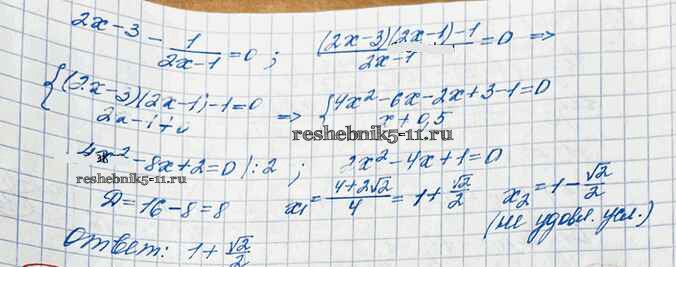 2x-3 - 1/(2x-1) = 0 ; ((2x-3)(2x-1)-1)/(2x-1) = 0 =>
{(2x-3)(2x-1)-1=0 => {4x²-6x-2x+3-1=0
2x-1≠0 x≠0,5
reshebnik5-11.ru
4x²-8x+2=0 /:2 ; 2x²-4x+1=0
reshebnik5-11.ru
D=16-8=8 x₁=(4+2√2)/4=1+√2/2 x₂=1-√2/2
(не удовл. усл.)
Ответ: 1+√2/2